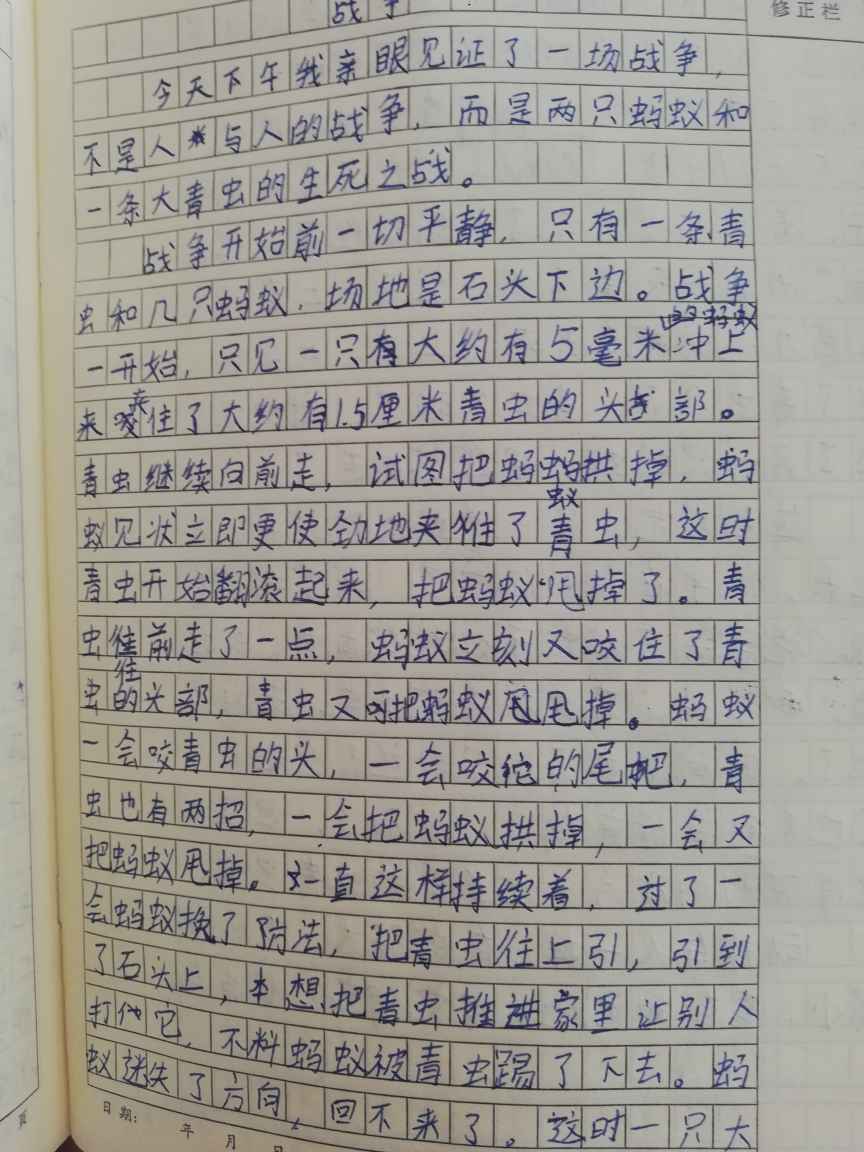 战争
修正栏
今天下午我亲眼见证了一场战争,
不是人与人的战争,而是两只蚂蚁和
一条大青虫的生死之战。
战争开始前一切平静,只有一条青
虫和几只蚂蚁,场地是石头下边。战争
的蚂蚁
一开始,只见一只有大约有5毫米冲上
来
来咬住了大约有1.5厘米青虫的头部。
青虫继续向前走,试图把蚂蚂拱掉,蚂
蚁
蚁见状立即更使劲地夹住了青虫,这时
青虫开始翻滚起来,把蚂蚁甩掉了。青
虫往前走了一点,蚂蚁立刻又咬住了青
往
虫的头部,青虫又把蚂蚁甩甩掉。蚂蚁
一会咬青虫的头,一会咬它的尾把,青
虫也有两招,一会把蚂蚁拱掉,一会又
把蚂蚁甩掉。一直这样持续着,过了一
会蚂蚁换了方法,把青虫往上引,引到
了石头上,本想把青虫推进家里让别人
打他它,不料蚂蚁被青虫踢了下去。蚂
蚁迷失了方向,回不来了。这时一只大
日期: 年 月 日